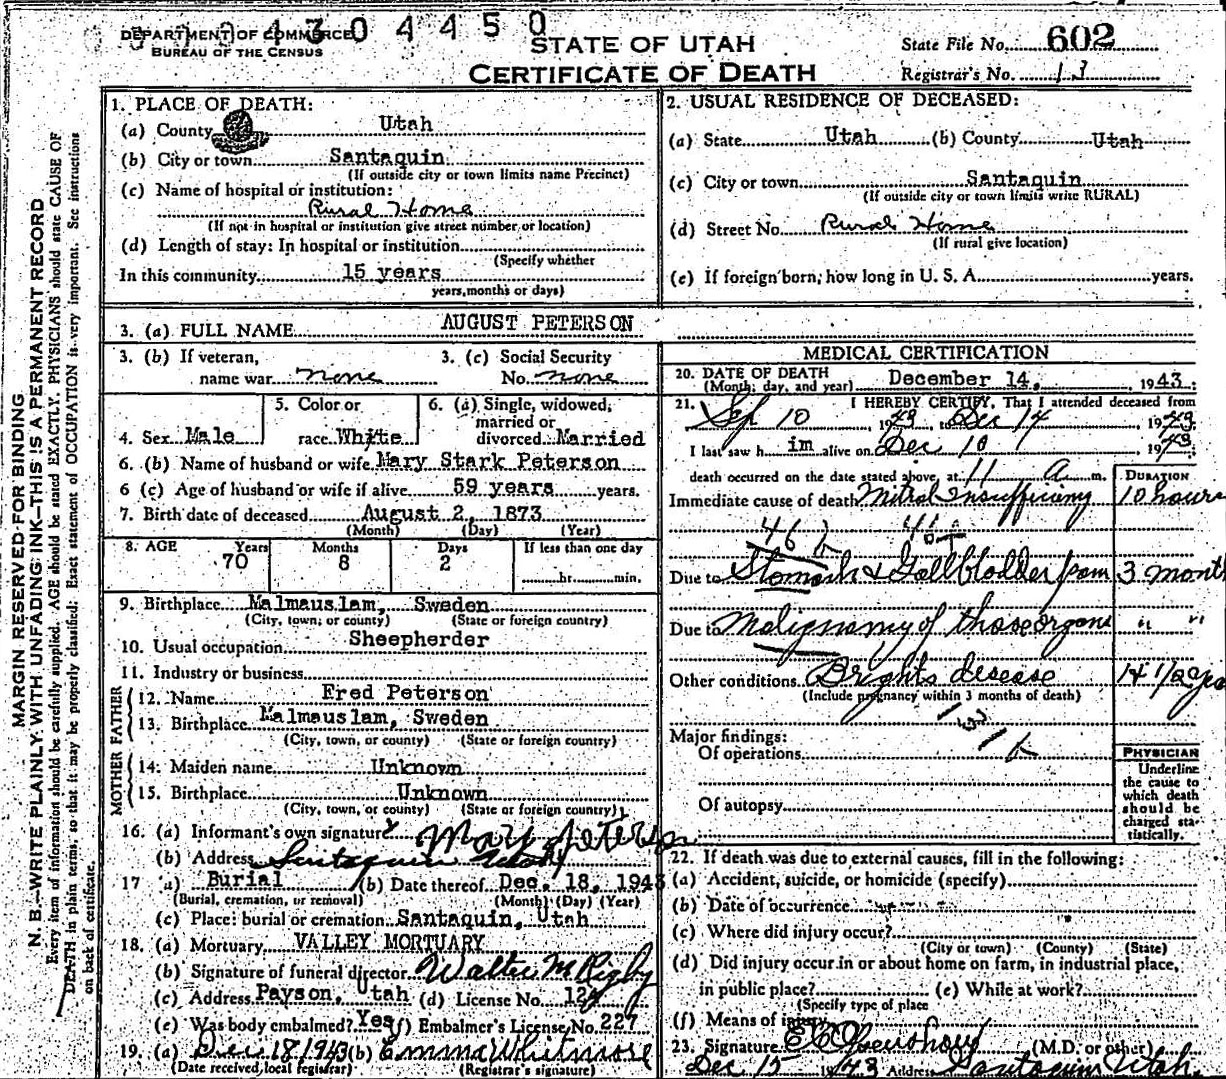 04304450
DEPARTMENT OF COMMERCE
BUREAU OF THE CENSUS
STATE OF UTAH
CERTIFICATE OF DEATH
State File No. 602
Registrar's No. 13
MARGIN RESERVED FOR BINDING
N. B.—WRITE PLAINLY WITH UNFADING INK—THIS IS A PERMANENT RECORD
Every item of information should be carefully supplied. AGE should be stated EXACTLY. PHYSICIANS should state CAUSE OF
DEATH in plain terms, so that it may be properly classified. Exact statement of OCCUPATION is very important. See instructions
on back of certificate.
1. PLACE OF DEATH:
(a) County Utah
(b) City or town Santaquin
(If outside city or town limits name Precinct)
(c) Name of hospital or institution:
Rural Home
(If not in hospital or institution give street number or location)
(d) Length of stay: In hospital or institution
(Specify whether
In this community 15 years
years, months or days)
2. USUAL RESIDENCE OF DECEASED:
(a) State Utah (b) County Utah
(c) City or town Santaquin
(If outside city or town limits write RURAL)
(d) Street No. Rural Home
(If rural give location)
(e) If foreign born, how long in U. S. A. years.
3. (a) FULL NAME AUGUST PETERSON
3. (b) If veteran, name war none
3. (c) Social Security No. none
4. Sex Male
5. Color or race White
6. (a) Single, widowed, married or divorced Married
6. (b) Name of husband or wife Mary Stark Peterson
6 (c) Age of husband or wife if alive 59 years years.
7. Birth date of deceased August 2, 1873
(Month) (Day) (Year)
8. AGE Years Months Days If less than one day
70 8 2 hr. min.
9. Birthplace Malmauslam, Sweden
(City, town, or county) (State or foreign country)
10. Usual occupation Sheepherder
11. Industry or business
FATHER
12. Name Fred Peterson
13. Birthplace Malmauslam, Sweden
(City, town, or county) (State or foreign country)
MOTHER
14. Maiden name Unknown
15. Birthplace Unknown
(City, town, or county) (State or foreign country)
16. (a) Informant's own signature Mary Peterson
(b) Address Santaquin Utah
17 (a) Burial (b) Date thereof Dec. 18, 1943
(Burial, cremation, or removal) (Month) (Day) (Year)
(c) Place: burial or cremation Santaquin, Utah
18. (a) Mortuary VALLEY MORTUARY
(b) Signature of funeral director Walter M Rigby
(c) Address Payson, Utah (d) License No. 124
(e) Was body embalmed? Yes (f) Embalmer's License No. 227
19. (a) Dec 18 1943 (b) Emma Whitmore
(Date received local registrar) (Registrar's signature)
MEDICAL CERTIFICATION
20. DATE OF DEATH
(Month, day, and year) December 14, 1943
21. I HEREBY CERTIFY, That I attended deceased from
Sep 10 1943, to Dec 14 1943
I last saw him alive on Dec 10 1943
death occurred on the date stated above, at 11 a. m.
DURATION
Immediate cause of death Mitral Insufficiency 10 hours
46 b
Due to Stomach & Gallbladder from 3 month
Due to Malignancy of those organs " "
Other conditions Brights disease 14 1/2 yea
(Include pregnancy within 3 months of death)
131 b
Major findings:
Of operations
Of autopsy
PHYSICIAN
Underline
the cause to
which death
should be
charged sta-
tistically.
22. If death was due to external causes, fill in the following:
(a) Accident, suicide, or homicide (specify)
(b) Date of occurrence
(c) Where did injury occur?
(City or town) (County) (State)
(d) Did injury occur in or about home on farm, in industrial place,
in public place? (e) While at work?
(Specify type of place
(f) Means of injury
23. Signature (M.D. or other)
Dec 15 1943 Address Santaquin Utah.